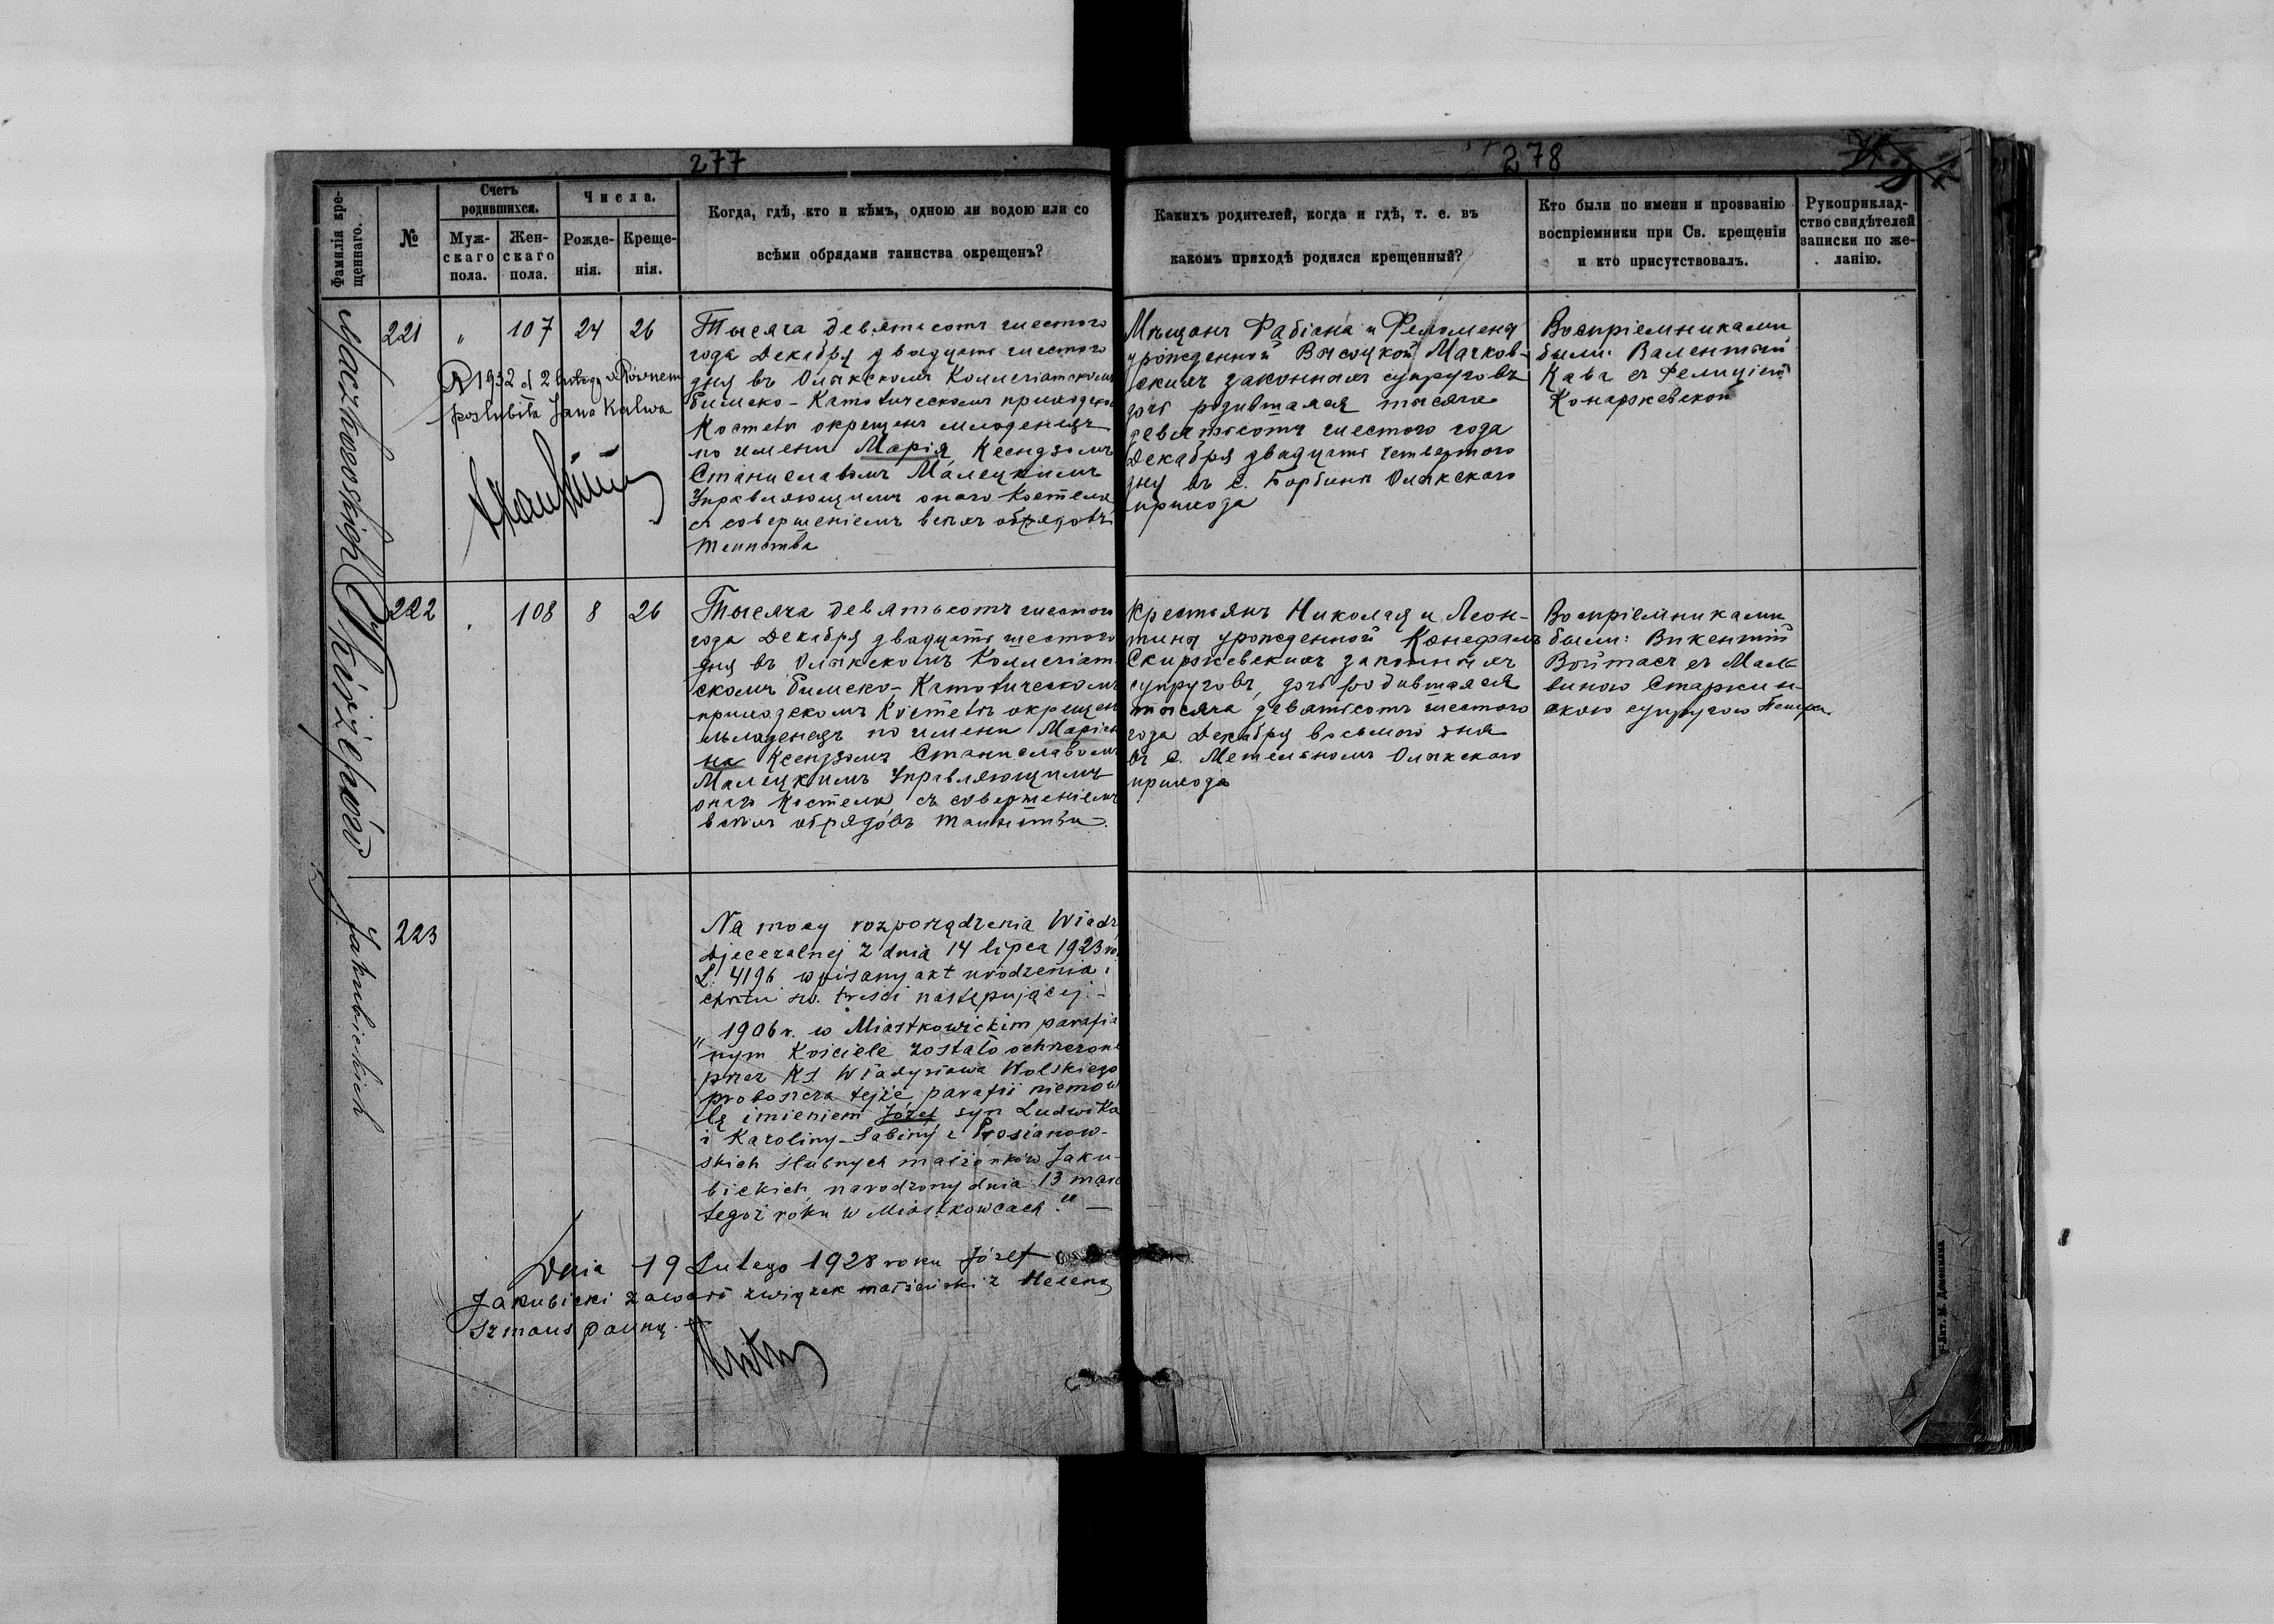 277
278
Фамилія кре-
щеннаго.
№
Счетъ
родившихся.
Муж-
скаго
пола.
Жен-
скаго
пола.
Числа.
Рожде-
нія.
Креще-
нія.
Когда, гдѣ, кто и кѣмъ, одною ли водою или со
всѣми обрядами таинства окрещенъ?
Какихъ родителей, когда и гдѣ, т. е. въ
какомъ приходѣ родился крещенный?
Кто были по имени и прозванію
воспріемники при Св. крещеніи
и кто присутствовалъ.
Рукоприклад-
ство свидѣтелей
записки по же-
ланію.
221 „ 107 24 26
R 1932 d 2 lutego w Równem
poślubiła Jana Kulwa
Тысяча девятьсотъ шестого
года Декабря двадцать шестого
дня въ Олыкскомъ Коллегіатскомъ
Римско-Католическомъ приходско
Костелѣ окрещенъ младенецъ
по имени Марія, Ксендзомъ
Станиславомъ Малецкимъ
Управляющимъ оного Костела
съ совершеніемъ всѣхъ обрядовъ
таинства
Мѣщанъ Фабіана и Филомены
урожденной Высоцкой Мачков-
скихъ законныхъ супруговъ
дочь родившаяся тысяча
девятьсотъ шестого года
Декабря двадцать четвертого
дня въ с. Борбинѣ Олыкского
прихода
Воспріемниками
были: Валентый
Кава съ Фелиціею
Конаржевской
222 „ 108 8 26
Тысяча девятьсотъ шестого
года Декабря двадцать шестого
дня въ Олыкскомъ Коллегіат
скомъ Римско-Католическомъ
приходскомъ Костелѣ окрещен
младенецъ по имени Маріан
на Ксендзомъ Станиславомъ
Малецкимъ Управляющимъ
оного Костела, съ совершеніемъ
всѣхъ обрядовъ таинства.
Крестьянъ Николая и Леон-
тины урожденной Конефалъ
Скиржевскихъ законныхъ
супруговъ, дочь родившаяся
тысяча девятьсотъ шестого
года Декабря восьмого дня
въ с. Метельномъ Олыкского
прихода
Воспріемниками
были: Викентій
Войтасъ съ Маль
виною Старжин-
скою супругою
223
Jakubickich
Na mocy rozporządzenia Wiadz
Djecezalnej z dnia 14 lipca 1923 ro.
L. 4196 wpisany akt urodzenia i
chrztu św. treści następującej:-
„1906 r. w Miastkowickim parafia
nym Kościele zostało ochrzczone
przez Ks. Władysława Wolskiego
proboszcza tejże parafii niemow
lę imieniem Józef syn Ludwika
i Karoliny-Sabiny z Prosianow-
skich ślubnych małżonków Jaku-
bickich, narodzony dnia 13 marc
tegoż roku w Miastkowcach." —
Dnia 19 Lutego 1928 roku Józef
Jakubicki zawarł związek małżeński z Heleną
Szmaus panną.